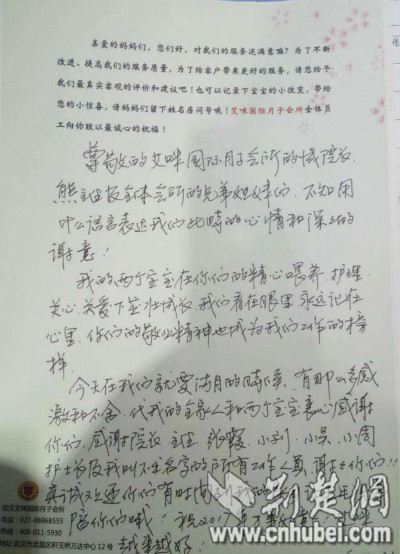 亲爱的妈妈们，您们好，对我们的服务还满意嘛？为了不断
改进、提高我们的服务质量，为了给客户带来更好的服务，请您给予
我们最真实客观的评价和建议吧！也可以记录下宝宝的小改变，带给
您的小惊喜，请妈妈们留下姓名房间号哦！艾咪国际月子会所全体员
工向你致以最诚心的祝福！
尊敬的艾咪国际月子会所的 院长
熊主任及全体会所的兄弟姐妹们 不知用
什么语言表达我们此时的心情和深深的
谢意！
我的两个宝宝在你们的精心喂养 护理
关心 关爱下茁壮成长 我们看在眼里 永远记在
心里 你们的敬业精神也成为我们工作的榜
样
今天在我们就要满月的时候 有那么多感
激和不舍 代我的全家人和两个宝宝衷心感谢
你们 感谢院长 主任 张霞 小刘 小吴 小周
护士 及我叫不出名字的所有工作人员 谢谢你们!!
你们有时间
陪你们哦！祝2017
越来越好
武汉艾咪国际月子会所
电话:027-88868555
400-011-5930
武汉市武昌区积玉桥万达中心12号
荆楚網
www.cnhubei.com